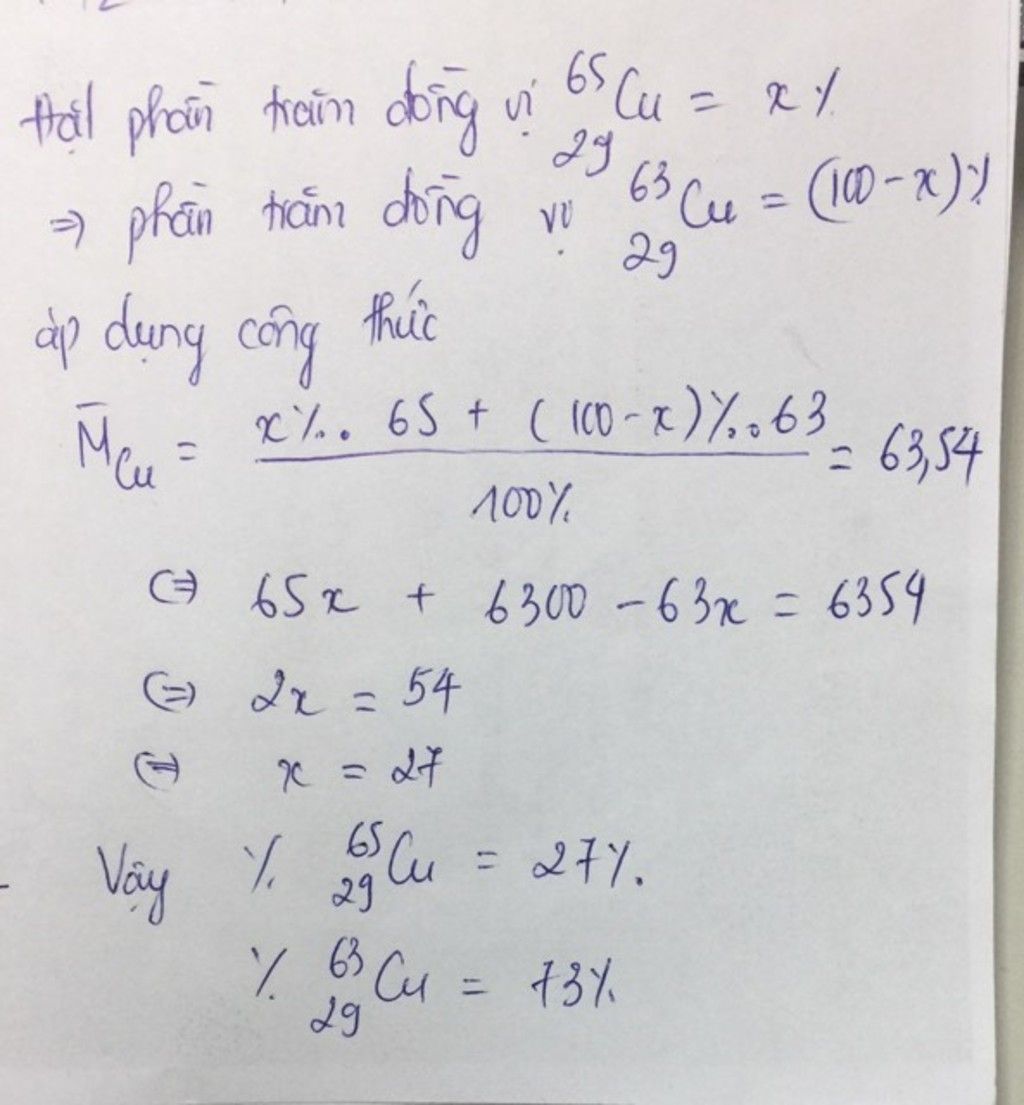 Đặt phần trăm đồng vị ⁶⁵₂₉Cu = x%
⇒ phần trăm đồng vị ⁶³₂₉Cu = (100 - x)%
áp dụng công thức
M̄Cu = (x%. 65 + (100 - x)%.63) / 100% = 63,54
⇔ 65x + 6300 - 63x = 6354
⇔ 2x = 54
⇔ x = 27
Vậy % ⁶⁵₂₉Cu = 27%.
% ⁶³₂₉Cu = 73%